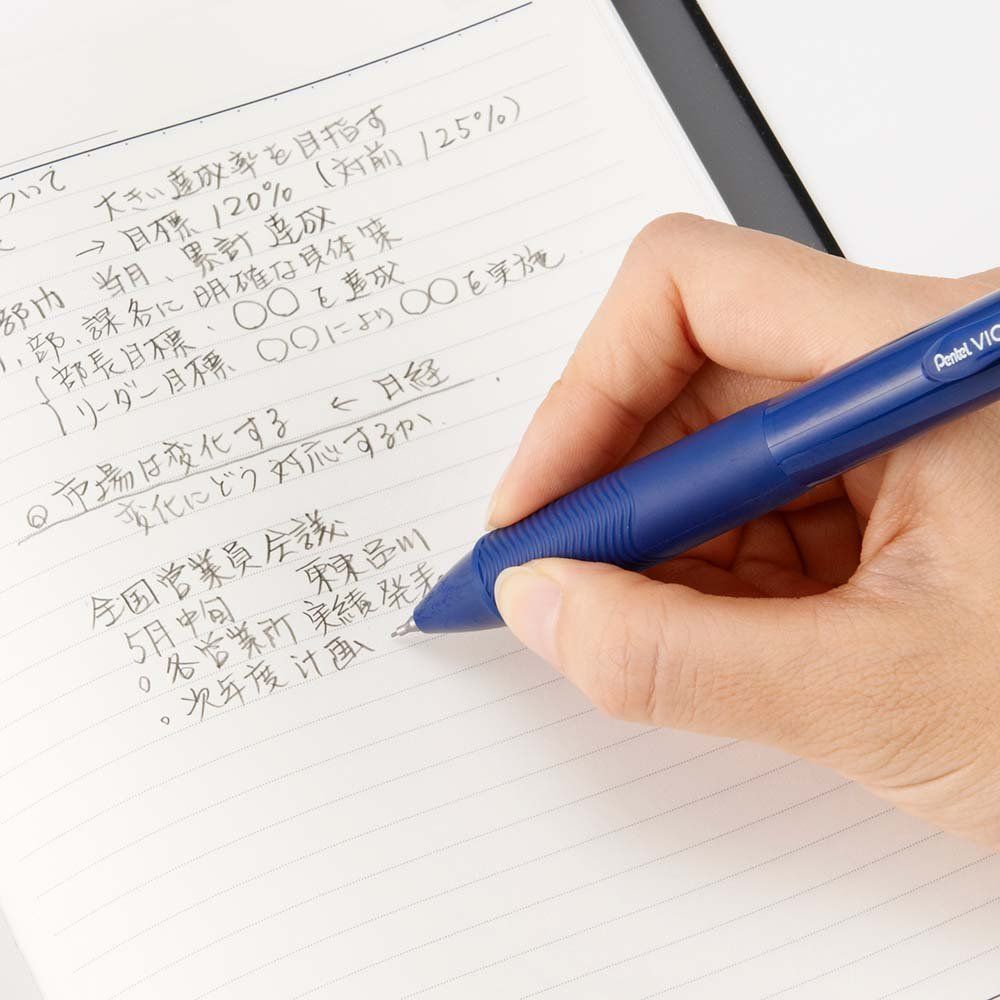 ついて
大きい達成率を目指す
→目標 120% (対前 125%)
部内 当月、累計 達成
部、課各に明確な具体策
部長目標、○○を達成
リーダー目標 ○○により○○を実施
市場は変化する ← 日経
変化にどう対応するか
全国営業員会議
5月中旬 東京品川
○各営業所 実績発表
○次年度計画
Pentel VIC